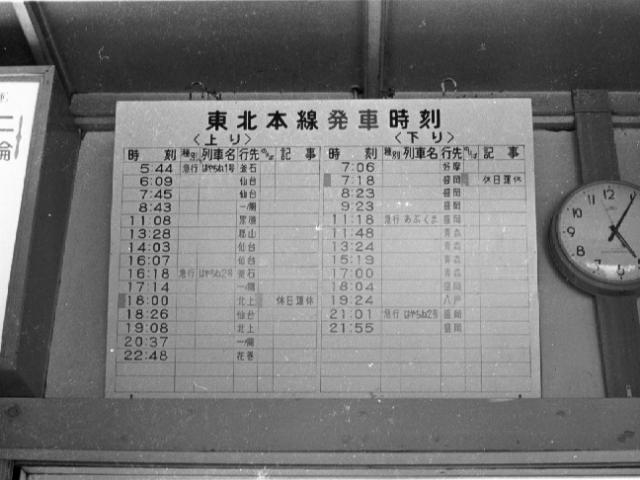 東北本線発車時刻
〈上り〉 〈下り〉
時刻 種別 列車名 行先 のりば 記事 時刻 種別 列車名 行先 のりば 記事
5:44 急行 はやちね1号 釜石 7:06 好摩
6:09 仙台 7:18 盛岡 休日運休
7:45 仙台 8:23 盛岡
8:43 一ノ関 9:23 盛岡
11:08 黒磯 11:18 急行 あぶくま 盛岡
13:28 郡山 11:48 青森
14:03 仙台 13:24 青森
16:07 仙台 15:19 青森
16:18 急行 はやちね2号 釜石 17:00 青森
17:14 一ノ関 18:04 盛岡
18:00 北上 休日運休 19:24 八戸
18:26 仙台 21:01 急行 はやちね2号 盛岡
19:08 北上 21:55 盛岡
20:37 一ノ関
22:48 花巻
12
1
2
3
4
5
6
7
8
9
10
11